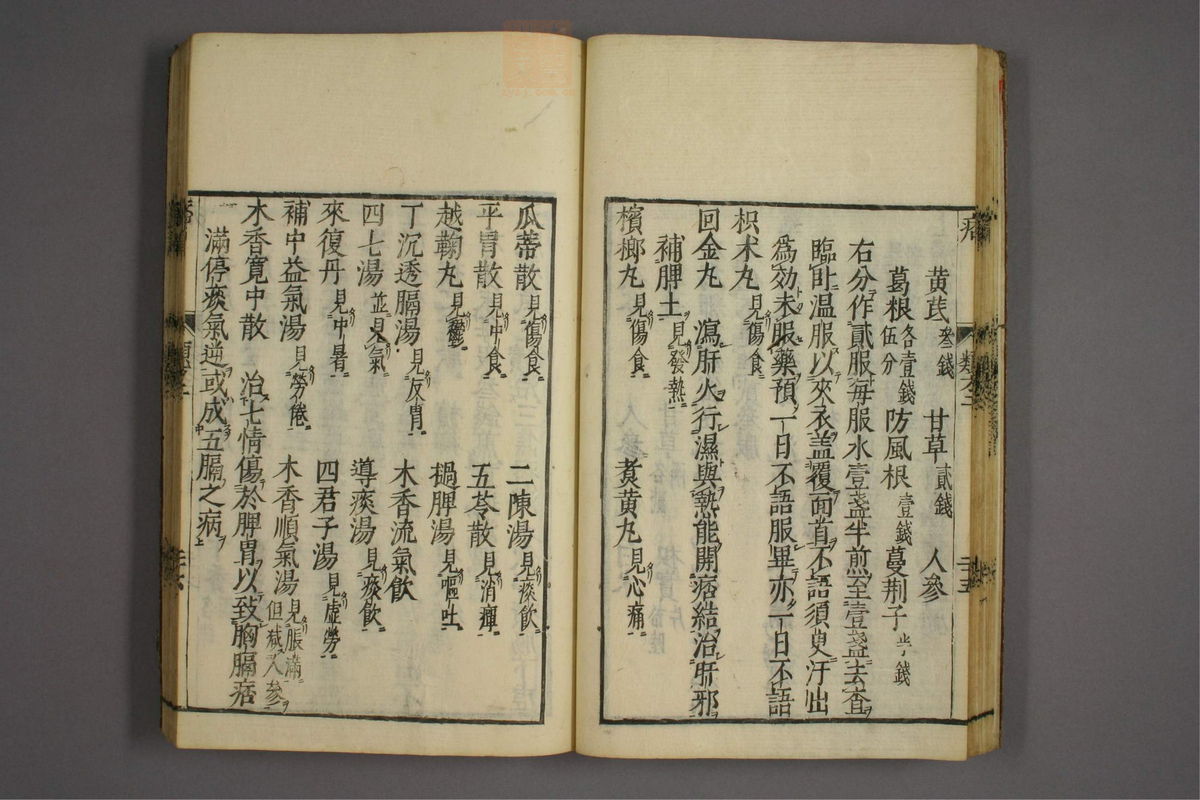 黄芪叁錢 甘草貳錢 人參
葛根各壹錢伍分 防風根壹錢 蔓荆子半錢
右分作貳服每服水壹盞半煎至壹盞去査
臨卧温服以來衣盖覆面首不語須臾汗出
爲効未服藥預一日不語服畢亦一日不語
枳术丸見傷食
回金丸 瀉肝火行濕與熱能開痞結治肝邪
補脾土見發熱
檳榔丸見傷食 煑黄丸見心痛
瓜蒂散見傷食 二陳湯見痰飲
平胃散見中食 五苓散見消癉
越鞠丸見鬱 槌脾湯見嘔吐
丁沉透膈湯見反胃 木香流氣飲
四七湯並見氣 導痰湯見痰飲
來復丹見中暑 四君子湯見虛勞
補中益氣湯見勞倦 木香順氣湯見脹滿但減人參
木香寛中散 治七情傷於脾胃以致胸膈痞
滿停痰氣逆或成五膈之病